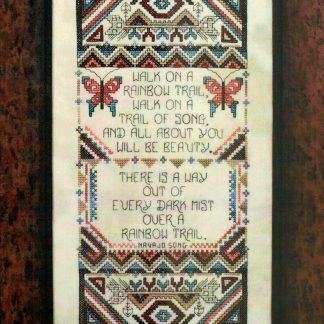 WALK ON A
RAINBOW TRAIL,
WALK ON A
TRAIL OF SONG,
AND ALL ABOUT YOU
WILL BE BEAUTY.
THERE IS A WAY
OUT OF
EVERY DARK MIST
OVER A
RAINBOW TRAIL.
NAVAJO SONG